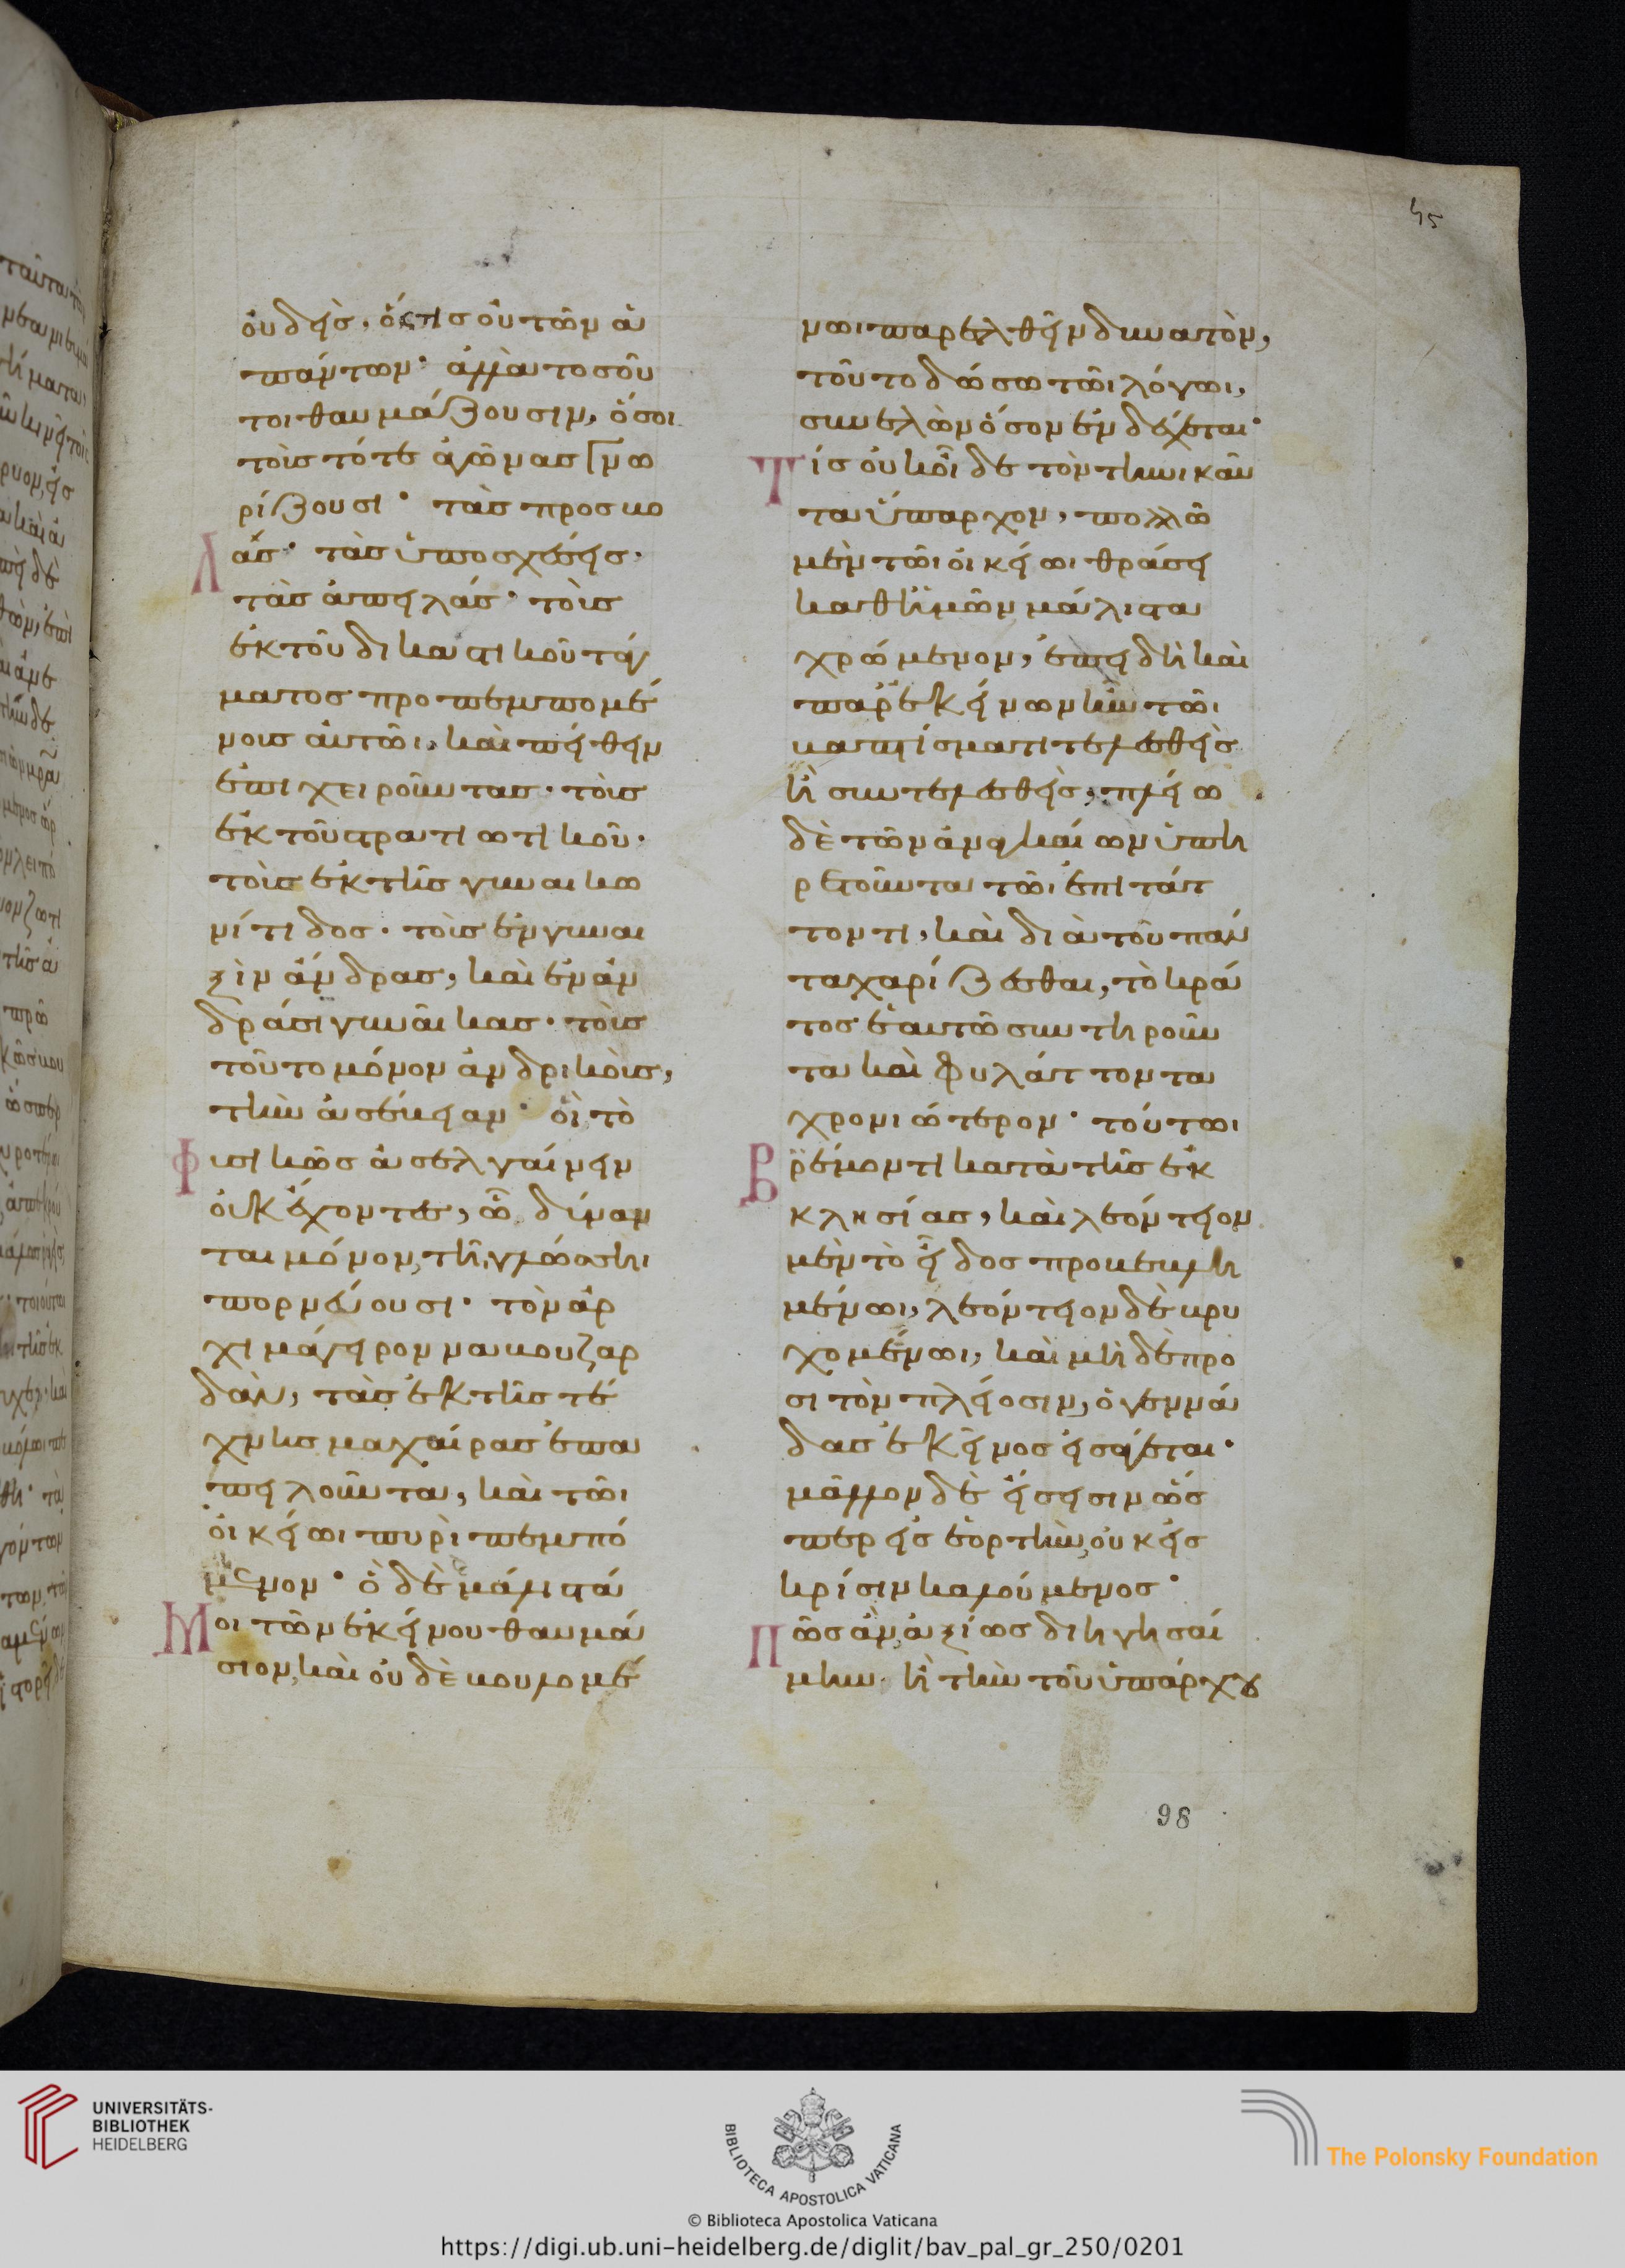 45
οὐδεὶς, ὅστις οὐ τῶν ἁ
πάντων· ἀλλὰ τοσοῦ
τοι θαυμάζουσιν, ὅσοι
τοῖς τότε ἀγῶνας γνω
ρίζουσι· τὰς προσβο
λάς· τὰς ὑποσχέσεις·
τὰς ἀπειλάς· τοὺς
ἐκ τοῦ δικαστικοῦ τάγ
ματος προπεμπομέ
νους αὐτῶι, καὶ πείθειν
ἐπιχειροῦντας· τοὺς
ἐκ τοῦ στρατιωτικοῦ·
τοὺς ἐκ τῆς γυναικω
νίτιδος· τοὺς ἐν γυναι
ξὶν ἄνδρας, καὶ ἐν ἀν
δράσι γυναῖκας· τοὺς
τοῦτο μόνον ἀνδρικοὺς,
τὴν ἀσέβειαν· οἳ τὸ
φυσικῶς ἀσελγαίνειν
οὐκ ἔχοντες, ὧ δύναν
ται μόνον, τῆι γλώσσηι
πορνεύουσι· τὸν ἀρ
χιμάγειρον ναβουζαρ
δὰν, τὰς ἐκ τῆς τέ
χνης μαχαίρας ἐπα
πειλοῦντα, καὶ τῶι
οἰκείωι πυρὶ πεμπό
μενον· ὃ δὲ μάλιστά
μοι τῶν ἐκείνου θαυμά
σιον, καὶ οὐδὲ βουλομέ
νωι παρελθεῖν δυνατὸν,
τοῦτο δώσω τῶι λόγωι,
συνελὼν ὅσον ἐνδέχεται·
Τίς οὐκ οἶδε τὸν τηνικαῦ
τα ὕπαρχον, πολλῶ
μὲν τῶι οἰκείωι θράσει
καθ' ἡμῶν μάλιστα
χρώμενον, ἐπειδὴ καὶ
παρ' ἐκείνων ἦν τῶι
βαπτίσματι τελεσθεὶς
ἢ συντελεσθεὶς, πλείω
δὲ τῶν ἀναγκαίων ὑπη
ρετοῦντα τῶι ἐπιτάτ
τοντι, καὶ διὰ τοῦ πάν
τα χαρίζεσθαι, τὸ κρά
τος ἑαυτῶ συντηροῦν
τα καὶ φυλάττοντα
χρονιώτερον· τούτωι
βρέμοντι κατὰ τῆς ἐκ
κλησίας, καὶ λεόντειον
μὲν τὸ εἶδος προβεβλη
μένωι, λεόντειον δὲ βρυ
χομένωι, καὶ μηδὲ προ
σιτὸν πλείοσιν, ὁ γεννά
δας ἐκεῖνος εἰσάγεται·
μᾶλλον δὲ εἴσεισιν ὥσ
περ εἰς ἑορτὴν, οὐκ εἰς
κρίσιν καλούμενος·
Πῶς ἂν ἀξίως διηγησαί
μην· ἢ τὴν τοῦ ὑπάρχου
98
UNIVERSITÄTS-
BIBLIOTHEK
HEIDELBERG
BIBLIOTECA APOSTOLICA VATICANA
The Polonsky Foundation
© Biblioteca Apostolica Vaticana
https://digi.ub.uni-heidelberg.de/diglit/bav_pal_gr_250/0201